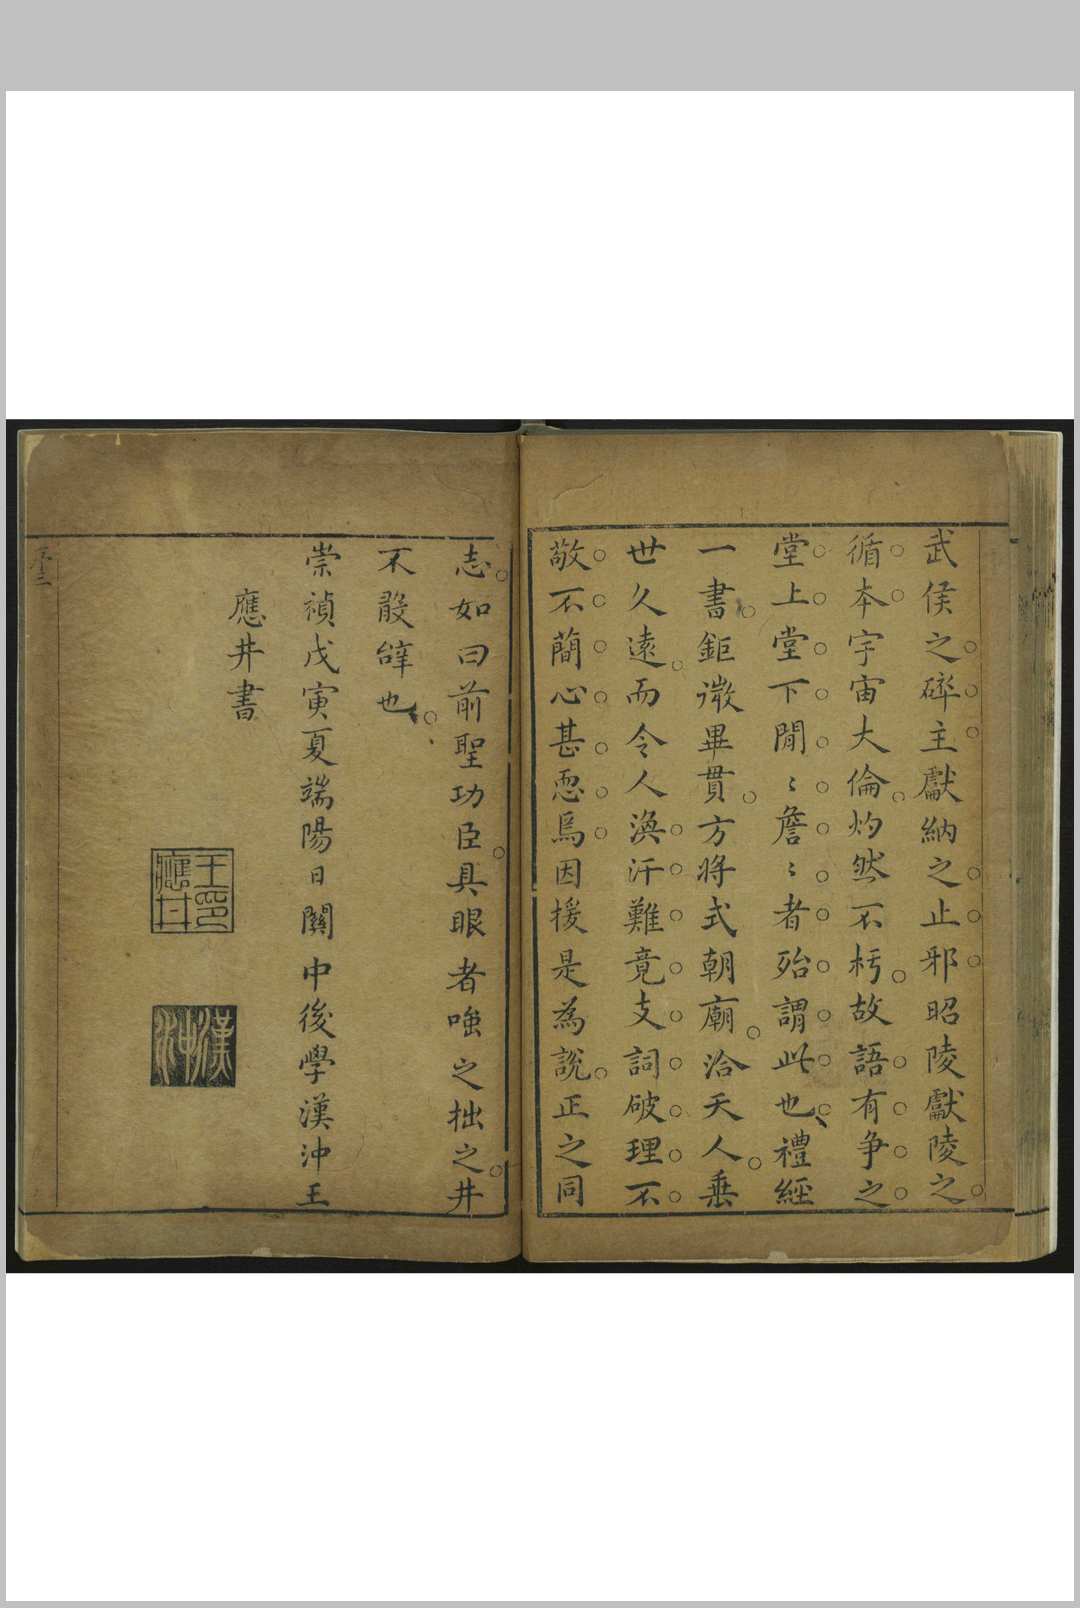 武侯之碑主獻納之止邪昭陵獻陵之
循本宇宙大倫灼然不朽故語有争之
堂上堂下閒〻詹〻者殆謂此也禮經
一書鉅微畢貫方將式朝廟洽天人垂
世久遠而令人渙汗難竟支詞破理不
敬不簡心甚恧焉因援是為說正之同
志如曰前聖功臣具眼者嗤之拙之井
不殷辭也
崇禎戊寅夏端陽日關中後學漢沖王
應井書
王應井印
漢沖
序三